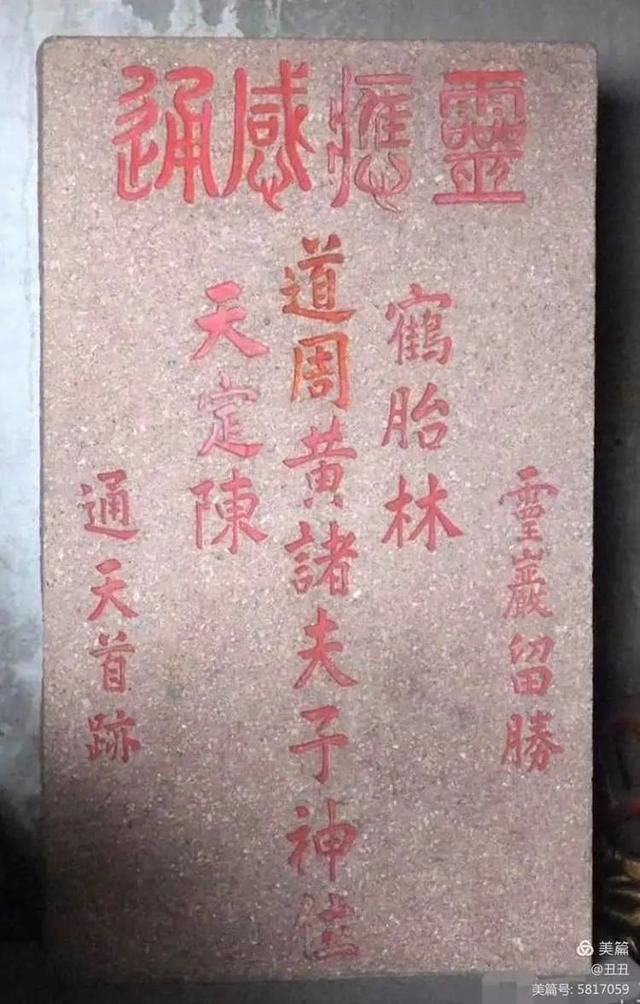 靈應感通
靈巖留勝
鶴胎林
道周黃諸夫子神位
天定陳
通天首跡
美篇
@丑丑
美篇号: 5817059